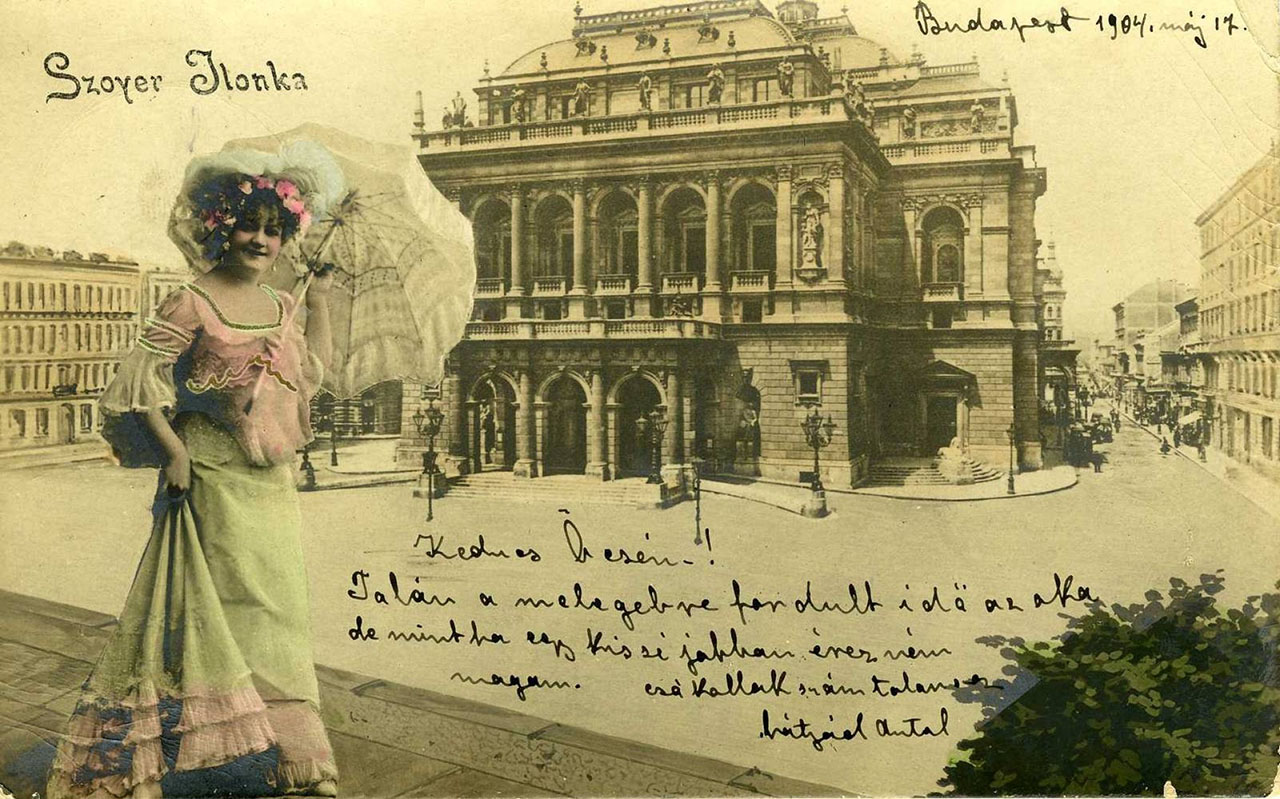 Szoyer Ilonka
Budapest 1904. máj 17.
Kedves Öcsém-!
Talán a melegebbre fordult idő az oka
de mintha egy kissé jobban érezném
magam. csókollak számtalanszor
Antal